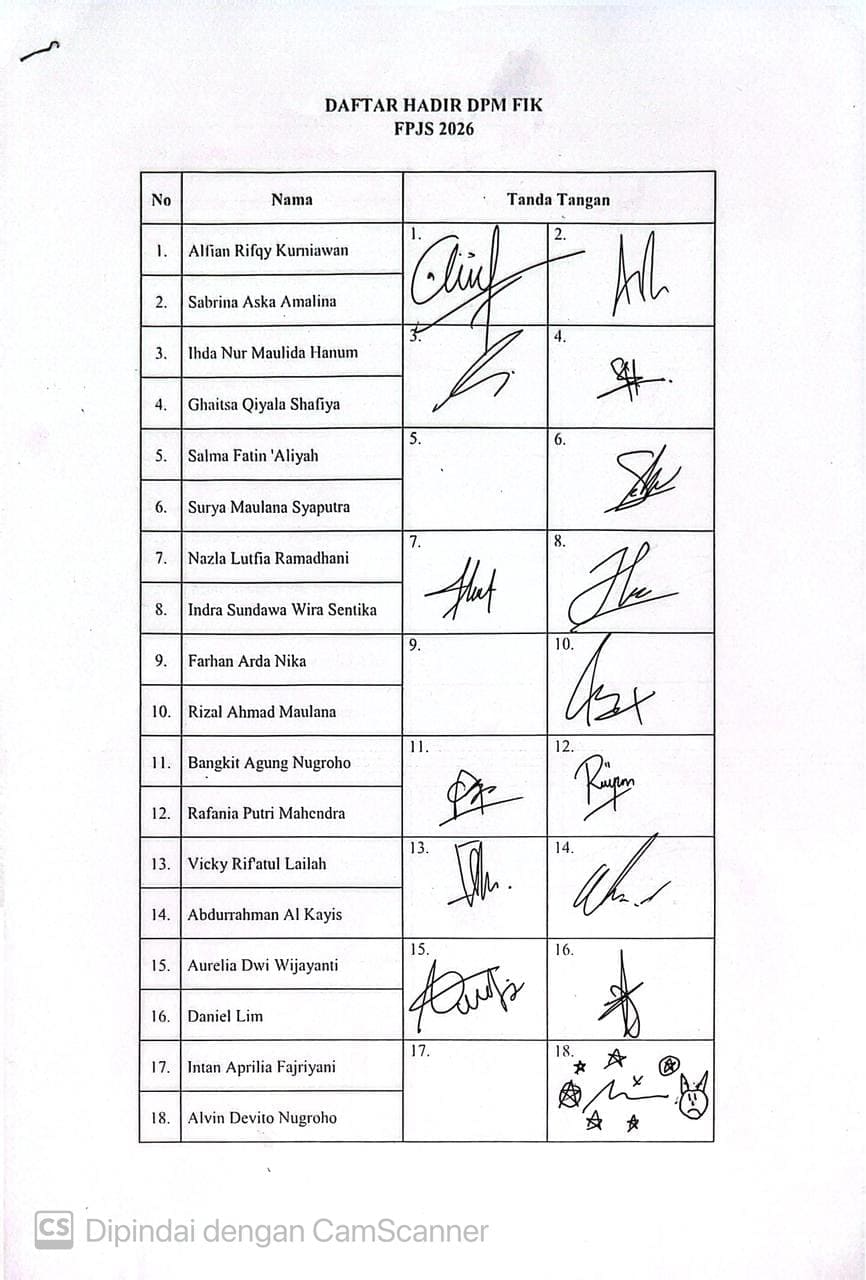 DAFTAR HADIR DPM FIK
FPJS 2026
No Nama Tanda Tangan
1. Alfian Rifqy Kurniawan 1. 2.
2. Sabrina Aska Amalina
3. Ihda Nur Maulida Hanum 3. 4.
4. Ghaitsa Qiyala Shafiya
5. Salma Fatin 'Aliyah 5. 6.
6. Surya Maulana Syaputra
7. Nazla Lutfia Ramadhani 7. 8.
8. Indra Sundawa Wira Sentika
9. Farhan Arda Nika 9. 10.
10. Rizal Ahmad Maulana
11. Bangkit Agung Nugroho 11. 12.
12. Rafania Putri Mahendra
13. Vicky Rif'atul Lailah 13. 14.
14. Abdurrahman Al Kayis
15. Aurelia Dwi Wijayanti 15. 16.
16. Daniel Lim
17. Intan Aprilia Fajriyani 17. 18.
18. Alvin Devito Nugroho
CS Dipindai dengan CamScanner